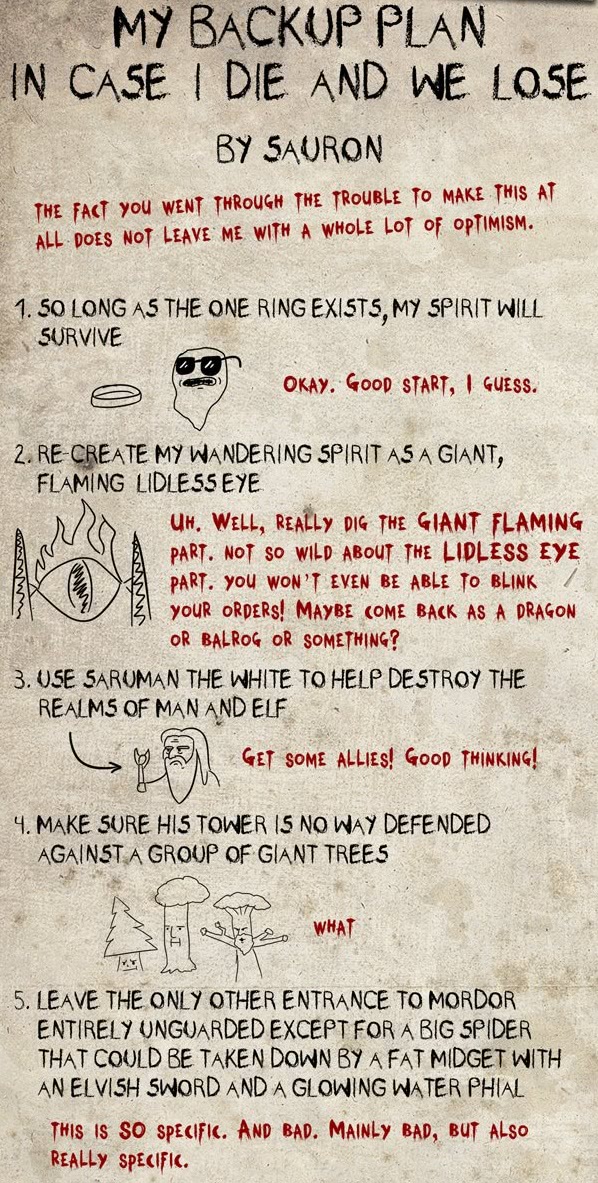 MY BACKUP PLAN
IN CASE I DIE AND WE LOSE
BY SAURON
THE FACT YOU WENT THROUGH THE TROUBLE TO MAKE THIS AT
ALL DOES NOT LEAVE ME WITH A WHOLE LOT OF OPTIMISM.
1. SO LONG AS THE ONE RING EXISTS, MY SPIRIT WILL
SURVIVE
OKAY. GOOD START, I GUESS.
2. RE-CREATE MY WANDERING SPIRIT AS A GIANT,
FLAMING LIDLESS EYE
UH. WELL, REALLY DIG THE GIANT FLAMING
PART. NOT SO WILD ABOUT THE LIDLESS EYE
PART. YOU WON'T EVEN BE ABLE TO BLINK
YOUR ORDERS! MAYBE COME BACK AS A DRAGON
OR BALROG OR SOMETHING?
3. USE SARUMAN THE WHITE TO HELP DESTROY THE
REALMS OF MAN AND ELF
GET SOME ALLIES! GOOD THINKING!
4. MAKE SURE HIS TOWER IS NO WAY DEFENDED
AGAINST A GROUP OF GIANT TREES
WHAT
5. LEAVE THE ONLY OTHER ENTRANCE TO MORDOR
ENTIRELY UNGUARDED EXCEPT FOR A BIG SPIDER
THAT COULD BE TAKEN DOWN BY A FAT MIDGET WITH
AN ELVISH SWORD AND A GLOWING WATER PHIAL
THIS IS SO SPECIFIC. AND BAD. MAINLY BAD, BUT ALSO
REALLY SPECIFIC.